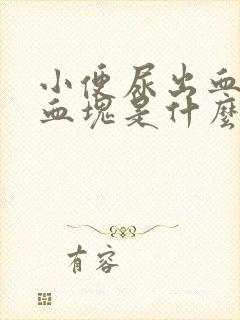 小便尿出血
血块是什麼
有容